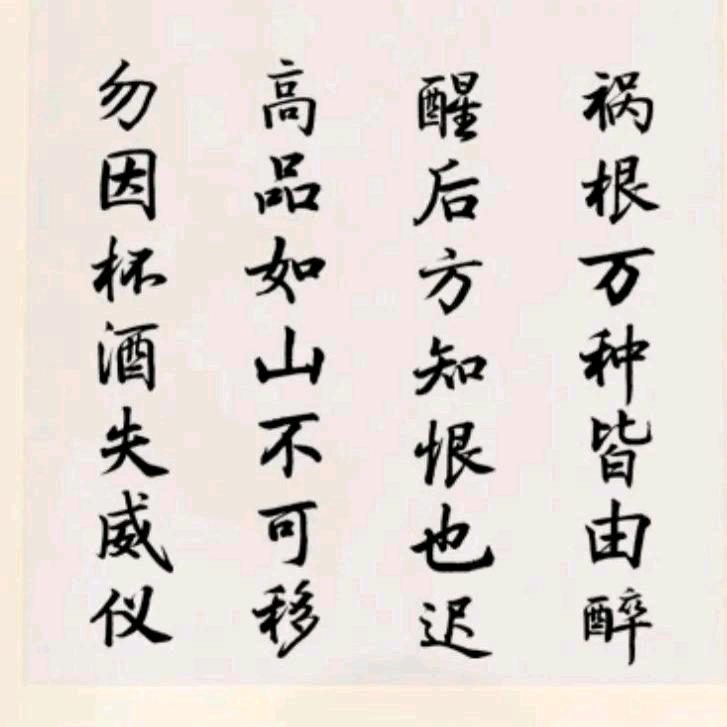 祸根万种皆由醉
醒后方知恨也迟
高品如山不可移
勿因杯酒失威仪